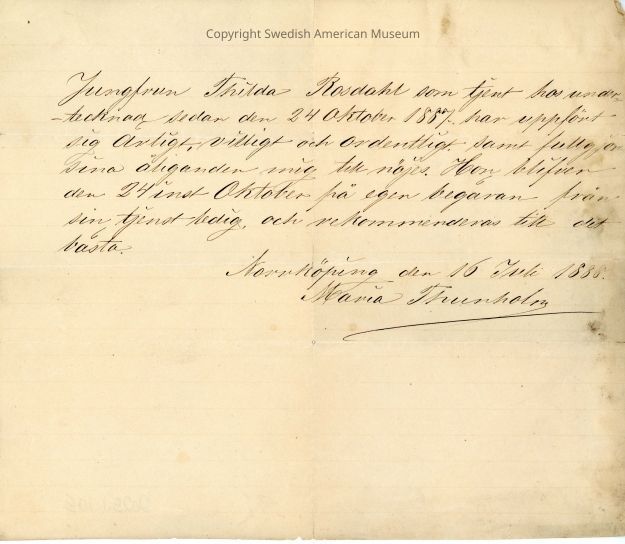 Copyright Swedish American Museum
Jungfrun Thilda Rosdahl som tjent hos under-
-tecknad sedan den 24 Oktober 1887. har uppfört
sig ärligt, villigt och ordentligt. samt fullgjort
sina åliganden mig till nöjes. Hon blifver
den 24 inst Oktober på egen begäran från
sin tjenst ledig, och rekommenderas till det
bästa.
Norrköping den 16 Juli 1888.
Maria Thunholm